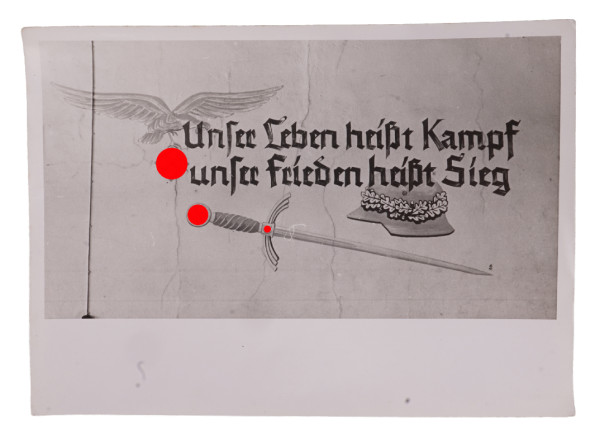 Unser Leben heißt Kampf
unser Frieden heißt Sieg